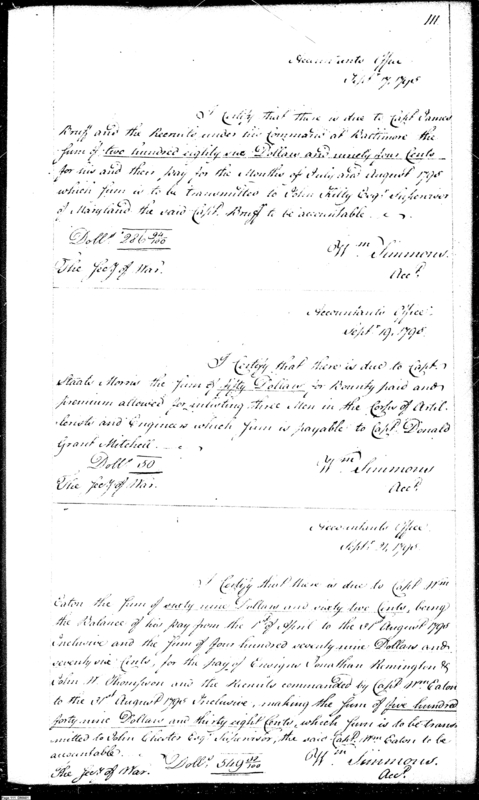 111
Accountants Office
Sept. 17. 1795
I Certify that there is due to Capt. James
Bruff and the Recruits under his Command at Baltimore the
Sum of two hundred eighty one Dollars and ninety four Cents
for his and their pay for the Months of July and August 1795
which Sum is to be transmitted to John Kilty Esqr. Supervisor
of Maryland the said Capt. Bruff to be accountable
Dolls. 281 94/100
Wm Simmons.
Acct.
The Secy of War.
Accountants Office
Septr. 19. 1795
I Certify that there is due to Capt.
Staats Morris the Sum of fifty Dollars for Bounty paid and
premium allowed for enlisting three Men in the Corps of Artil-
lerists and Engineers which Sum is payable to Capt. Donald
Grant Mitchell.
Dolls. 50
Wm Simmons
Acct.
The Secy of War.
Accountants Office
Septr. 21. 1795
I Certify that there is due to Capt. Wm
Eaton the Sum of sixty nine Dollars and sixty two Cents, being
the Balance of his pay from the 1st of April to the 31st August 1795
Inclusive and the Sum of four hundred seventy nine Dollars and
seventy six Cents, for the pay of Ensigns Jonathan Rimington &
John H Thompson and the Recruits commanded by Capt. Wm Eaton
to the 31st August 1795 Inclusive, making the Sum of five hundred
forty nine Dollars and thirty eight Cents, which Sum is to be trans-
mitted to John Chester Esqr. Supervisor, the said Capt. Wm Eaton to be
accountable
Dolls. 549 38/100
Wm Simmons.
Acct.
The Secy of War.